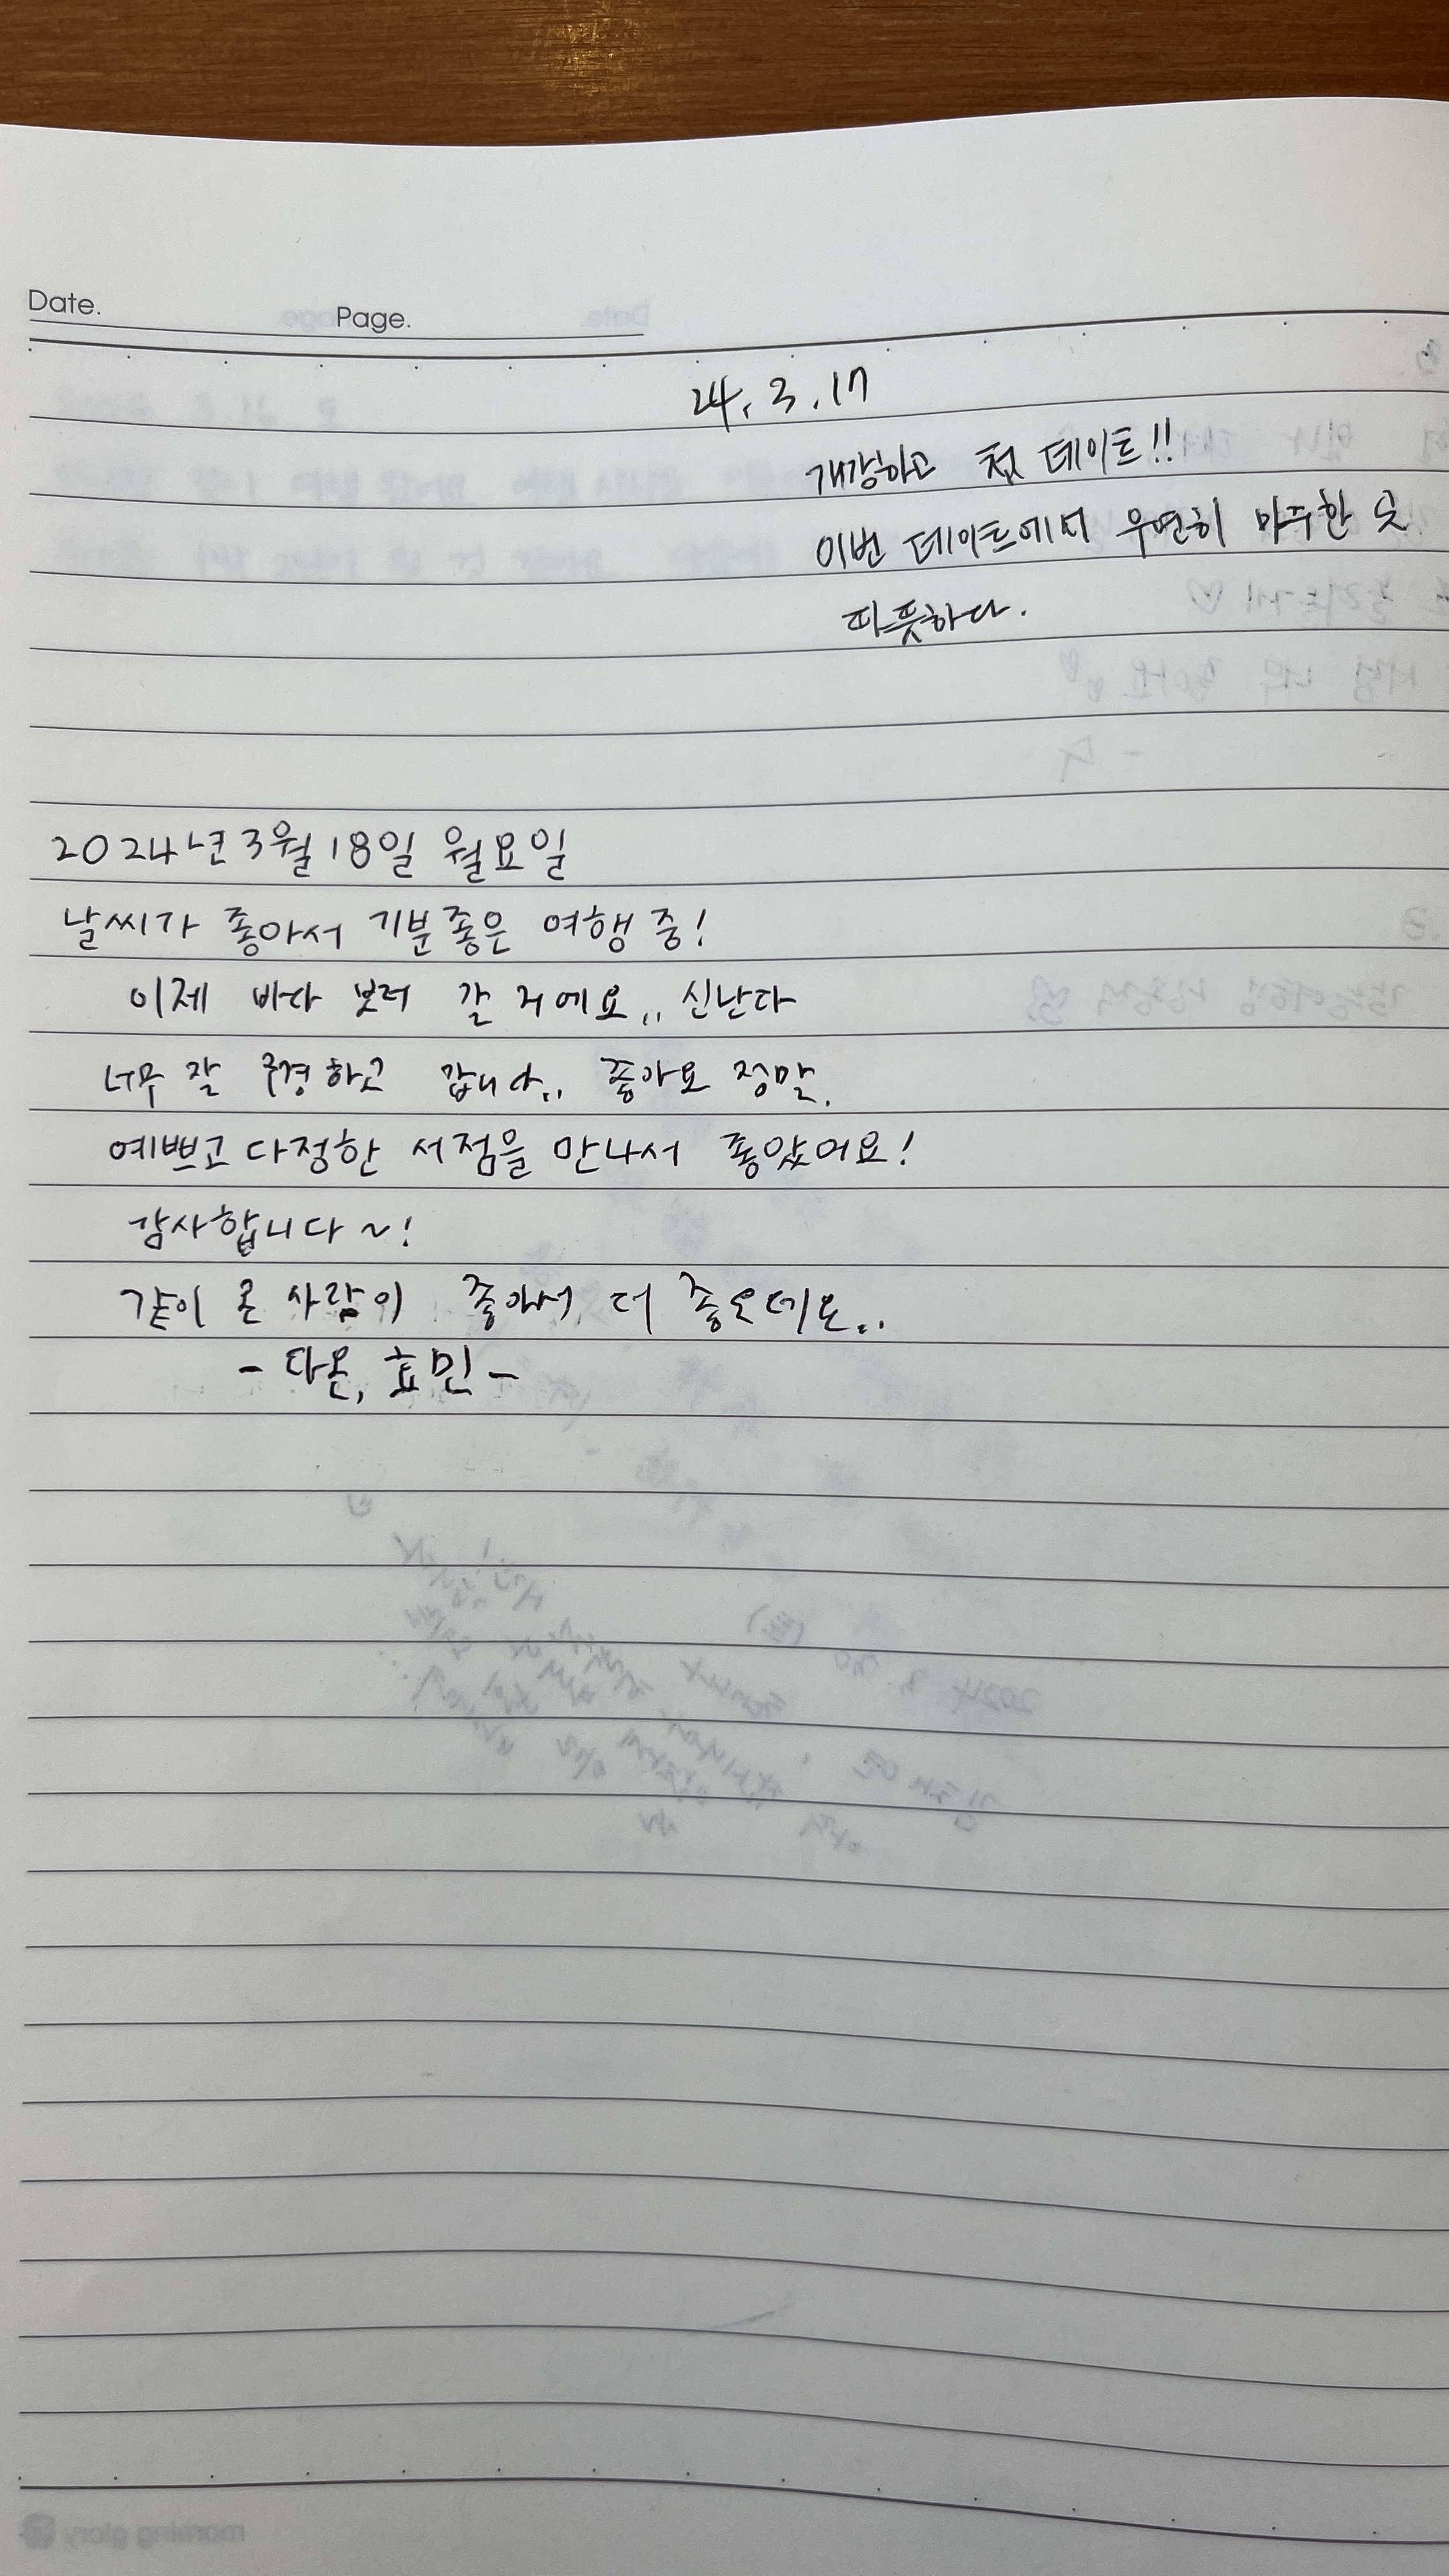 Date. Page.
24. 3. 17
개강하고 첫 데이트!!
이번 데이트에서 우연히 마주한 곳
따뜻하다.
2024년 3월 18일 월요일
날씨가 좋아서 기분좋은 여행 중!
이제 바다 보러 갈 거에요.. 신난다
너무 잘 구경하고 갑니다.. 좋아요 정말.
예쁘고 다정한 서점을 만나서 좋았어요!
감사합니다~!
같이 온 사람이 좋아서 더 좋은데요..
- 다온, 효민 -